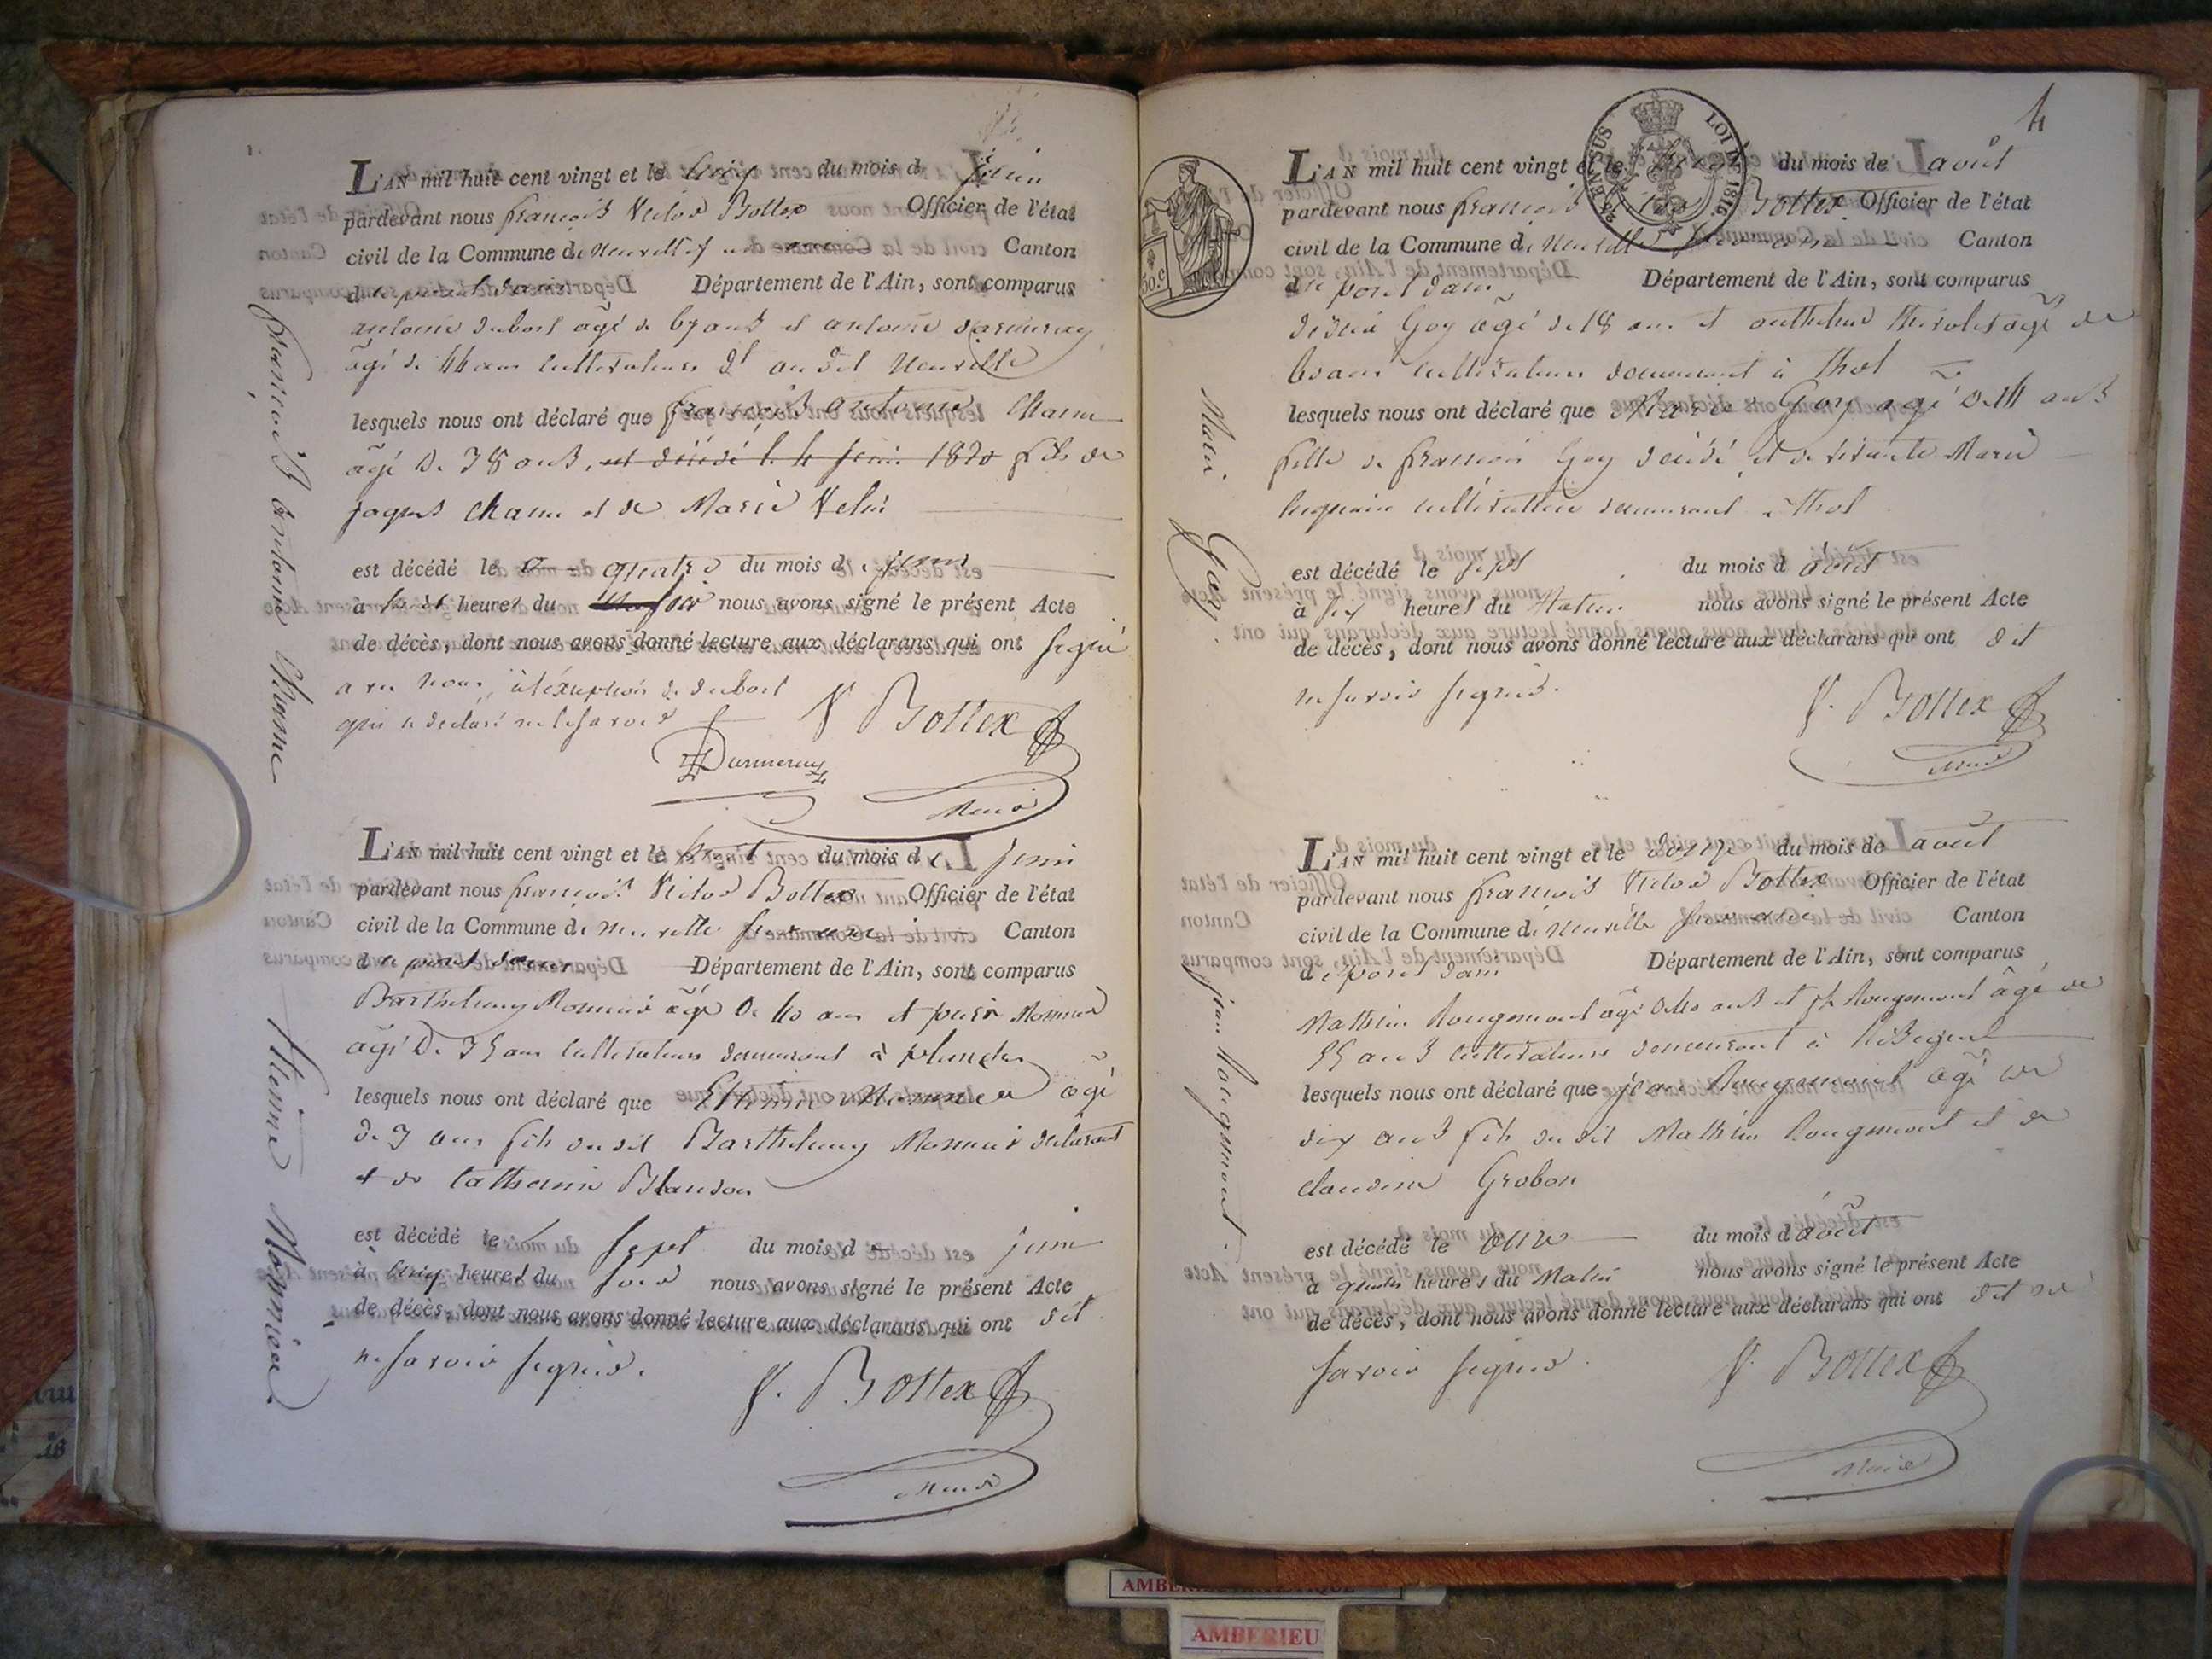 L'AN mil huit cent vingt et le cinq du mois de juin
pardevant nous françois Victor Bottex Officier de l'état
civil de la Commune de Neuville Canton
de pont dain Département de l'Ain, sont comparus
antoine dubost agé de ans et antoine darmeray
âgé de 44 ans cultivateurs dt au dit Neuville
lesquels nous ont déclaré que françois antoine Channe
âgé de 78 ans, est décédé le 4 juin 1820 fils de
jaques Channe et de Marie
est décédé le quatre du mois de juin
à heures du soir nous avons signé le présent Acte
de décès, dont nous avons donné lecture aux déclarans qui ont signé
avec nous, à léxception de dubost
qui a déclaré ne le savoir
V Bottex
Durmeray
Maire
françois antoine Channe
L'AN mil huit cent vingt et le huit du mois de juin
pardevant nous françois Victor Bottex Officier de l'état
civil de la Commune de Neuville sur ain Canton
de pont dain Département de l'Ain, sont comparus
Barthelemy Monnier âgé de 40 ans et Monnier
âgé de 35 ans cultivateurs demeurant à
lesquels nous ont déclaré que Etienne Monnier âgé
de 7 ans fils du dit Barthelemy Monnier déclarant
et de Catherine Blandon
est décédé le sept du mois de juin
à cinq heures du soir nous avons signé le présent Acte
de décès, dont nous avons donné lecture aux déclarans qui ont dit
ne savoir signer.
V. Bottex
Maire
Etienne Monnier
4
TIMBRE
50.c
EN SUS LOI DE 1816
L'AN mil huit cent vingt et le du mois de août
pardevant nous françois Victor Bottex Officier de l'état
civil de la Commune de Neuville sur ain Canton
de pont dain Département de l'Ain, sont comparus
Goy agé de 18 ans et agé de
ans cultivateurs demeurant à thol
lesquels nous ont déclaré que Marie Goy agé de 14 ans
fille de françois Goy décédé et de vivante Marie
cultivatrice demeurant a thol
est décédé le sept du mois d août
à six heures du Matin nous avons signé le présent Acte
de décès, dont nous avons donné lecture aux déclarans qui ont dit
ne savoir signer.
V. Bottex
Maire
Marie Goy.
L'AN mil huit cent vingt et le douze du mois de août
pardevant nous françois Victor Bottex Officier de l'état
civil de la Commune de Neuville sur ain Canton
de pont dain Département de l'Ain, sont comparus
Mathieu Rougemont agé de 40 ans et Rougemont âgé de
55 ans cultivateurs demeurant à
lesquels nous ont déclaré que jean Rougemont agé de
dix ans fils du dit Mathieu Rougemont et de
claudine Grobon
est décédé le onze du mois d août
à quatre heures du Matin nous avons signé le présent Acte
de décès, dont nous avons donné lecture aux déclarans qui ont dit ne
savoir signer.
V. Bottex
Maire
jean Rougemont.
AMBERIEU